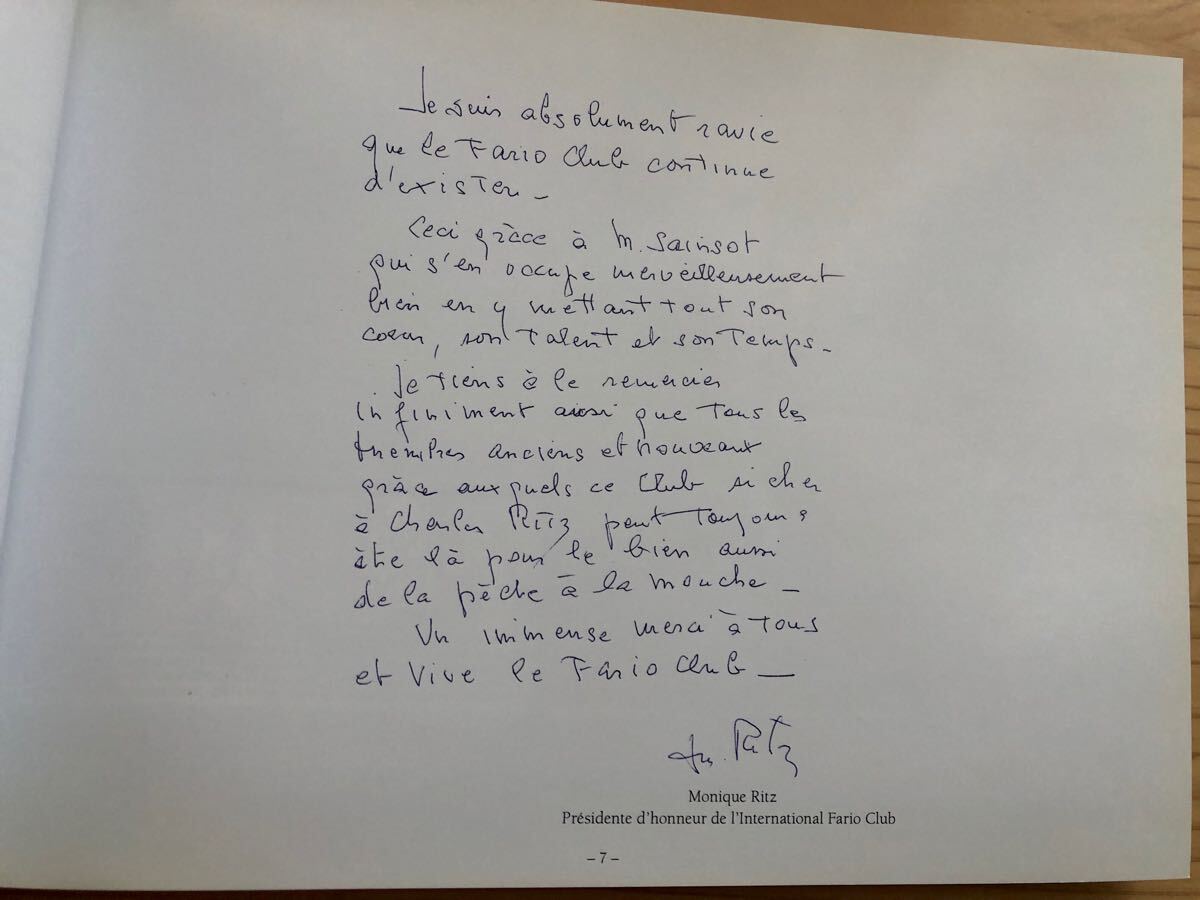 Je suis absolument ravie
que le Fario Club continue
d'exister –
Ceci grâce à M. Sainsot
qui s'en occupe merveilleusement
bien en y mettant tout son
coeur, son talent et son temps –
Je tiens à le remercier
infiniment ainsi que tous les
membres anciens et nouveaux
grâce auxquels ce Club si cher
à Charles Ritz peut toujours
être là pour le bien aussi
de la pêche à la mouche –
Un immense merci à tous
et Vive le Fario Club –
M. Ritz
Monique Ritz
Présidente d'honneur de l'International Fario Club
– 7 –